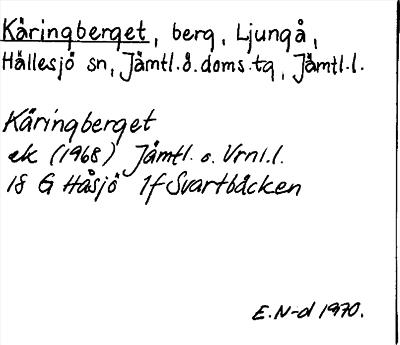 Käringberget, berg, Ljungå,
Hällesjö sn, Jämtl.ö.doms.tg, Jämtl.l.
Käringberget
ek (1968) Jämtl. o. Vrnl.l.
18 G Håsjö 1f Svartbäcken
E.N-d 1970.